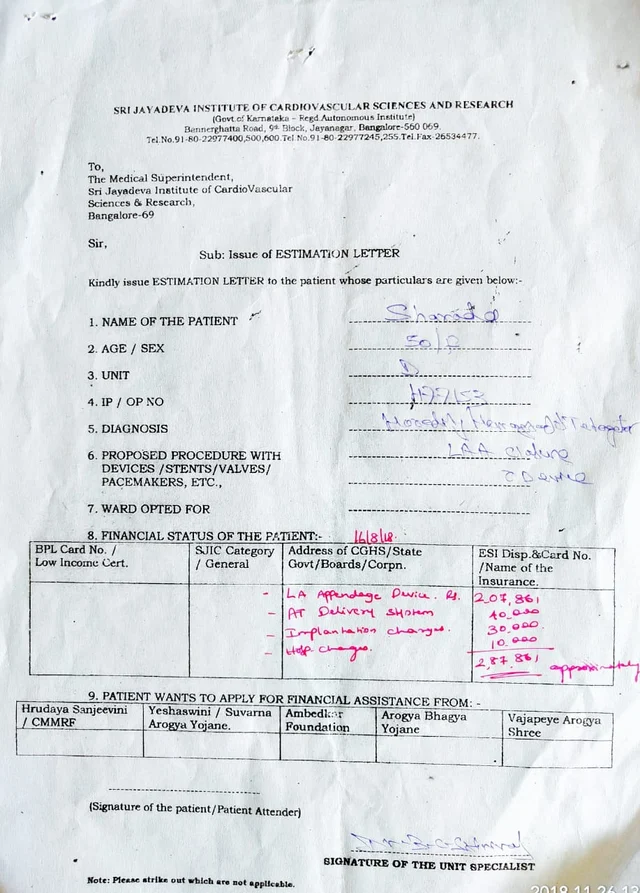 SRI JAYADEVA INSTITUTE OF CARDIOVASCULAR SCIENCES AND RESEARCH
(Govt.of Karnataka - Regd.Autonomous Institute)
Bannerghatta Road, 9th Block, Jayanagar, Bangalore-560 069.
Tel.No.91-80-22977400,500,600.Tel.No.91-80-22977245,255.Tel.Fax-26534477.
To,
The Medical Superintendent,
Sri Jayadeva Institute of CardioVascular
Sciences & Research,
Bangalore-69
Sir,
Sub: Issue of ESTIMATION LETTER
Kindly issue ESTIMATION LETTER to the patient whose particulars are given below:-
1. NAME OF THE PATIENT Sharada
2. AGE / SEX 50/F
3. UNIT D
4. IP / OP NO
5. DIAGNOSIS
6. PROPOSED PROCEDURE WITH LAA Closure
DEVICES /STENTS/VALVES/ Device
PACEMAKERS, ETC.,
7. WARD OPTED FOR
8. FINANCIAL STATUS OF THE PATIENT:- 16/8/18
BPL Card No. / Low Income Cert. SJIC Category / General Address of CGHS/State Govt/Boards/Corpn. ESI Disp.&Card No. /Name of the Insurance.
- LA Appendage Device. Rs. 2,07,861
- AT Delivery System 40,000
- Implantation charges. 30,000
- Hosp charges. 10,000
2,87,861 approximately
9. PATIENT WANTS TO APPLY FOR FINANCIAL ASSISTANCE FROM: -
Hrudaya Sanjeevini / CMMRF Yeshaswini / Suvarna Arogya Yojane. Ambedkar Foundation Arogya Bhagya Yojane Vajapeye Arogya Shree
(Signature of the patient/Patient Attender)
SIGNATURE OF THE UNIT SPECIALIST
Note: Please strike out which are not applicable.
2018.11.26 13